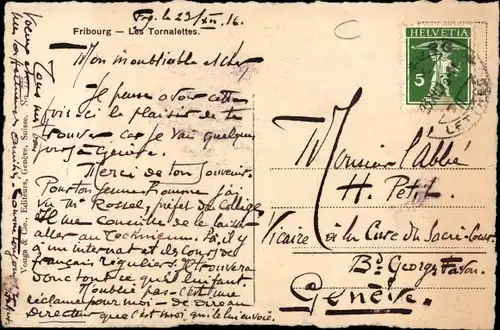 Frg. le 23/XII. 16.
Fribourg — Les Tornalettes.
Mon inoubliable et cher
Je pense avoir cette
fois-ci le plaisir de te
trouver car je vais quelques
jours à Genève.
Merci de ton souvenir.
Pour ton jeune homme j'ai
vu Mr Rossel, préfet du Collège
Il me conseille de le faire
aller au Technicum. Là, il y
a un internat et des cours de
français réguliers. Il trouvera
donc tout ce qu'il lui faut.
N'oublie pas - c'est une
réclame pour moi - de dire au
Directeur que c'est moi qui le lui envoie.
Vouga & Co., Editeurs, Genève, Suisse.
HELVETIA
5
LETTRES
Monsieur l'Abbé
H. Petit
Vicaire à la Cure du Sacré-Coeur
Bd. Georges Favon.
Genève.